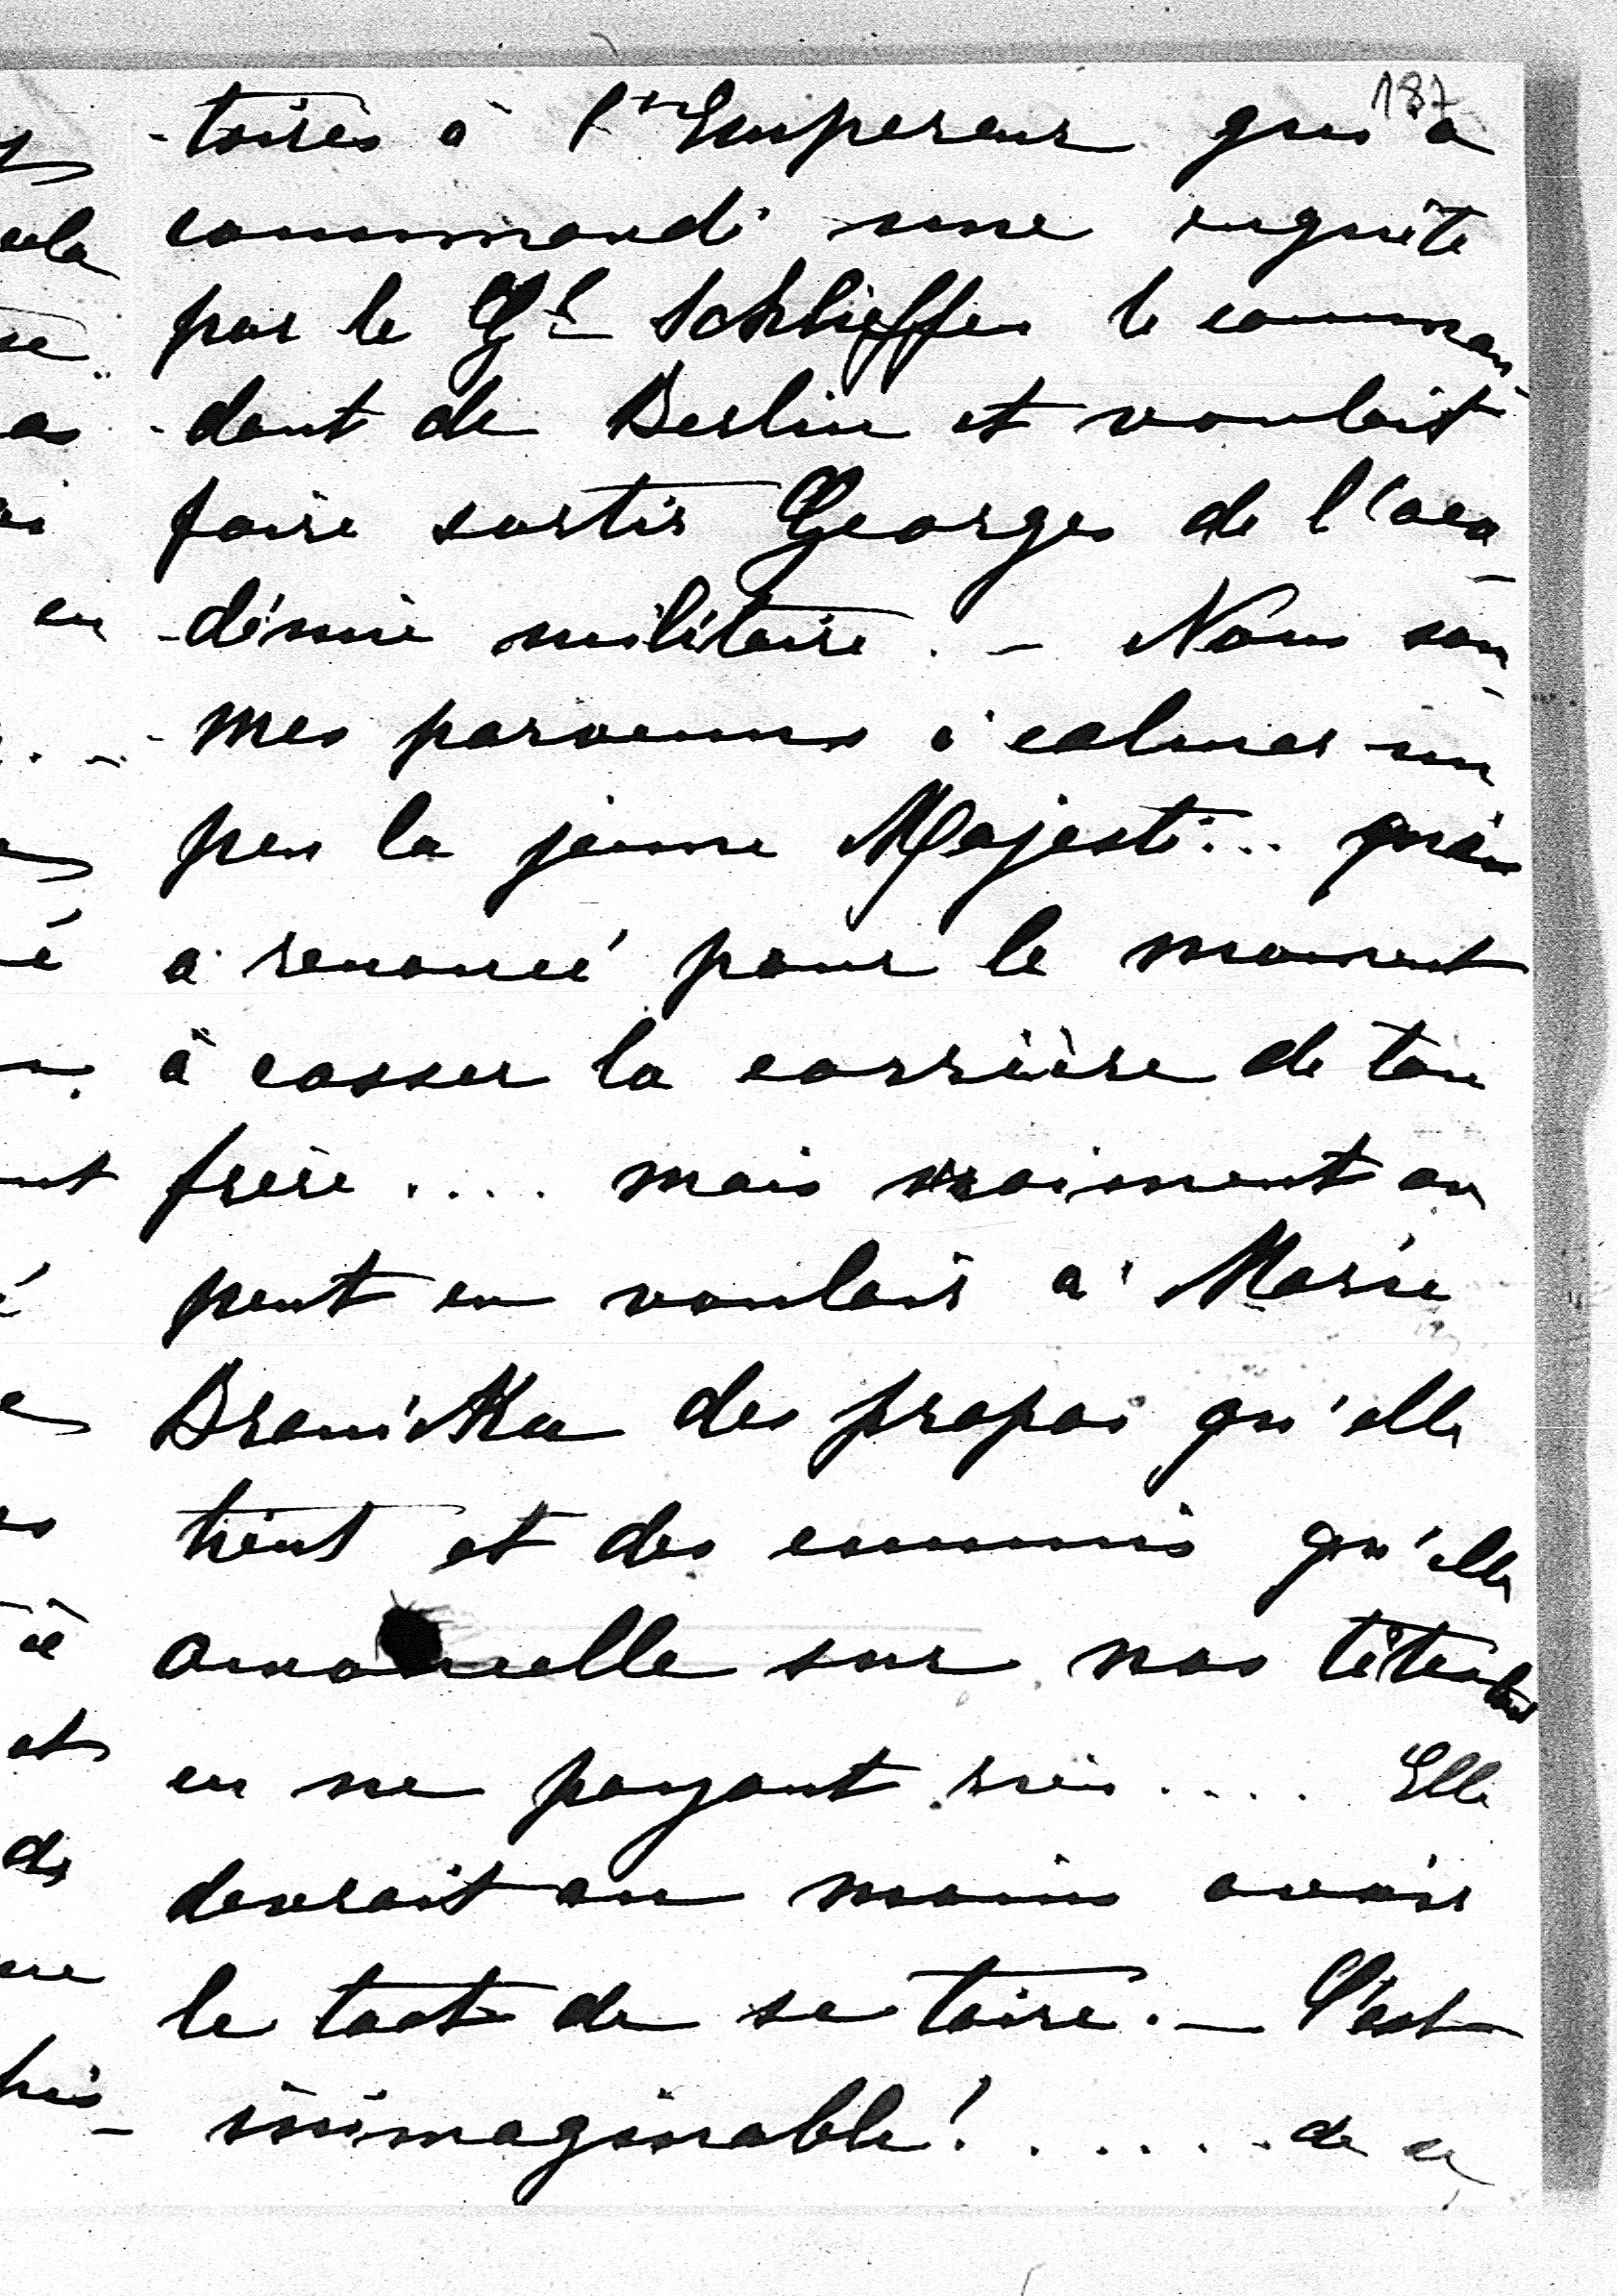 187
-toires à l'Empereur qui a
commandé une enquête
par le Gl Schlieffen le comman
-dant de Berlin et voulait
faire sortir Georges de l'aca
-démie militaire. - Nous som
-mes parvenus à calmer un
peu la jeune Majesté... qui
a renoncé pour le moment
à casser la carrière de ton
frère .... mais vraiment on
peut en vouloir à Marie
Branicka des propos qu'elle
tient et des ennuis qu'elle
amoncelle sur nos têtes
en ne payant rien .... Elle
devrait au moins avoir
le tact de se taire. - C'est
inimaginable! ...... de ce